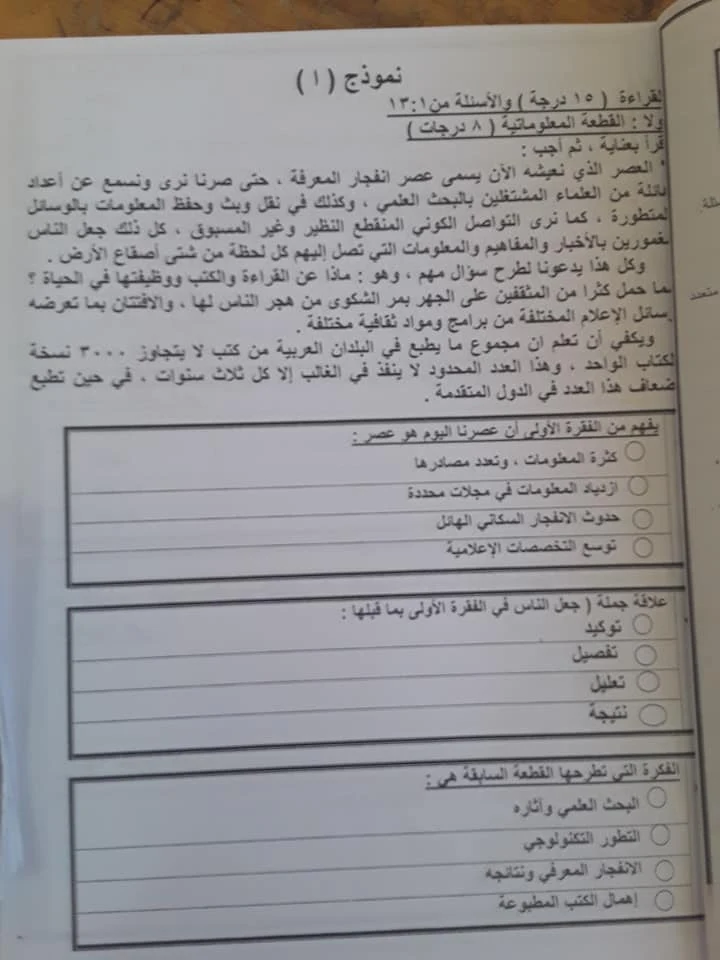 نموذج ( ١ )
لقراءة ( ١٥ درجة ) والأسئلة من ١:١٣
ولا : القطعة المعلوماتية ( ٨ درجات )
قرأ بعناية ، ثم أجب :
" العصر الذي نعيشه الآن يسمى عصر انفجار المعرفة ، حتى صرنا نرى ونسمع عن أعداد
هائلة من العلماء المشتغلين بالبحث العلمي ، وكذلك في نقل وبث وحفظ المعلومات بالوسائل
لمتطورة ، كما نرى التواصل الكوني المنقطع النظير وغير المسبوق ، كل ذلك جعل الناس
مغمورين بالأخبار والمفاهيم والمعلومات التي تصل إليهم كل لحظة من شتى أصقاع الأرض .
وكل هذا يدعونا لطرح سؤال مهم ، وهو : ماذا عن القراءة والكتب ووظيفتها في الحياة ؟
مما حمل كثرا من المثقفين على الجهر بمر الشكوى من هجر الناس لها ، والافتتان بما تعرضه
سائل الإعلام المختلفة من برامج ومواد ثقافية مختلفة .
ويكفي أن تعلم ان مجموع ما يطبع في البلدان العربية من كتب لا يتجاوز ٣٠٠٠ نسخة
لكتاب الواحد ، وهذا العدد المحدود لا ينفذ في الغالب إلا كل ثلاث سنوات ، في حين تطبع
ضعاف هذا العدد في الدول المتقدمة .
يفهم من الفقرة الأولى أن عصرنا اليوم هو عصر :
كثرة المعلومات ، وتعدد مصادرها
ازدياد المعلومات في مجلات محددة
حدوث الانفجار السكاني الهائل
توسع التخصصات الإعلامية
علاقة جملة ( جعل الناس في الفقرة الأولى بما قبلها :
توكيد
تفصيل
تعليل
نتيجة
الفكرة التي تطرحها القطعة السابقة هي :
البحث العلمي وآثاره
التطور التكنولوجي
الانفجار المعرفي ونتائجه
إهمال الكتب المطبوعة
متعدد